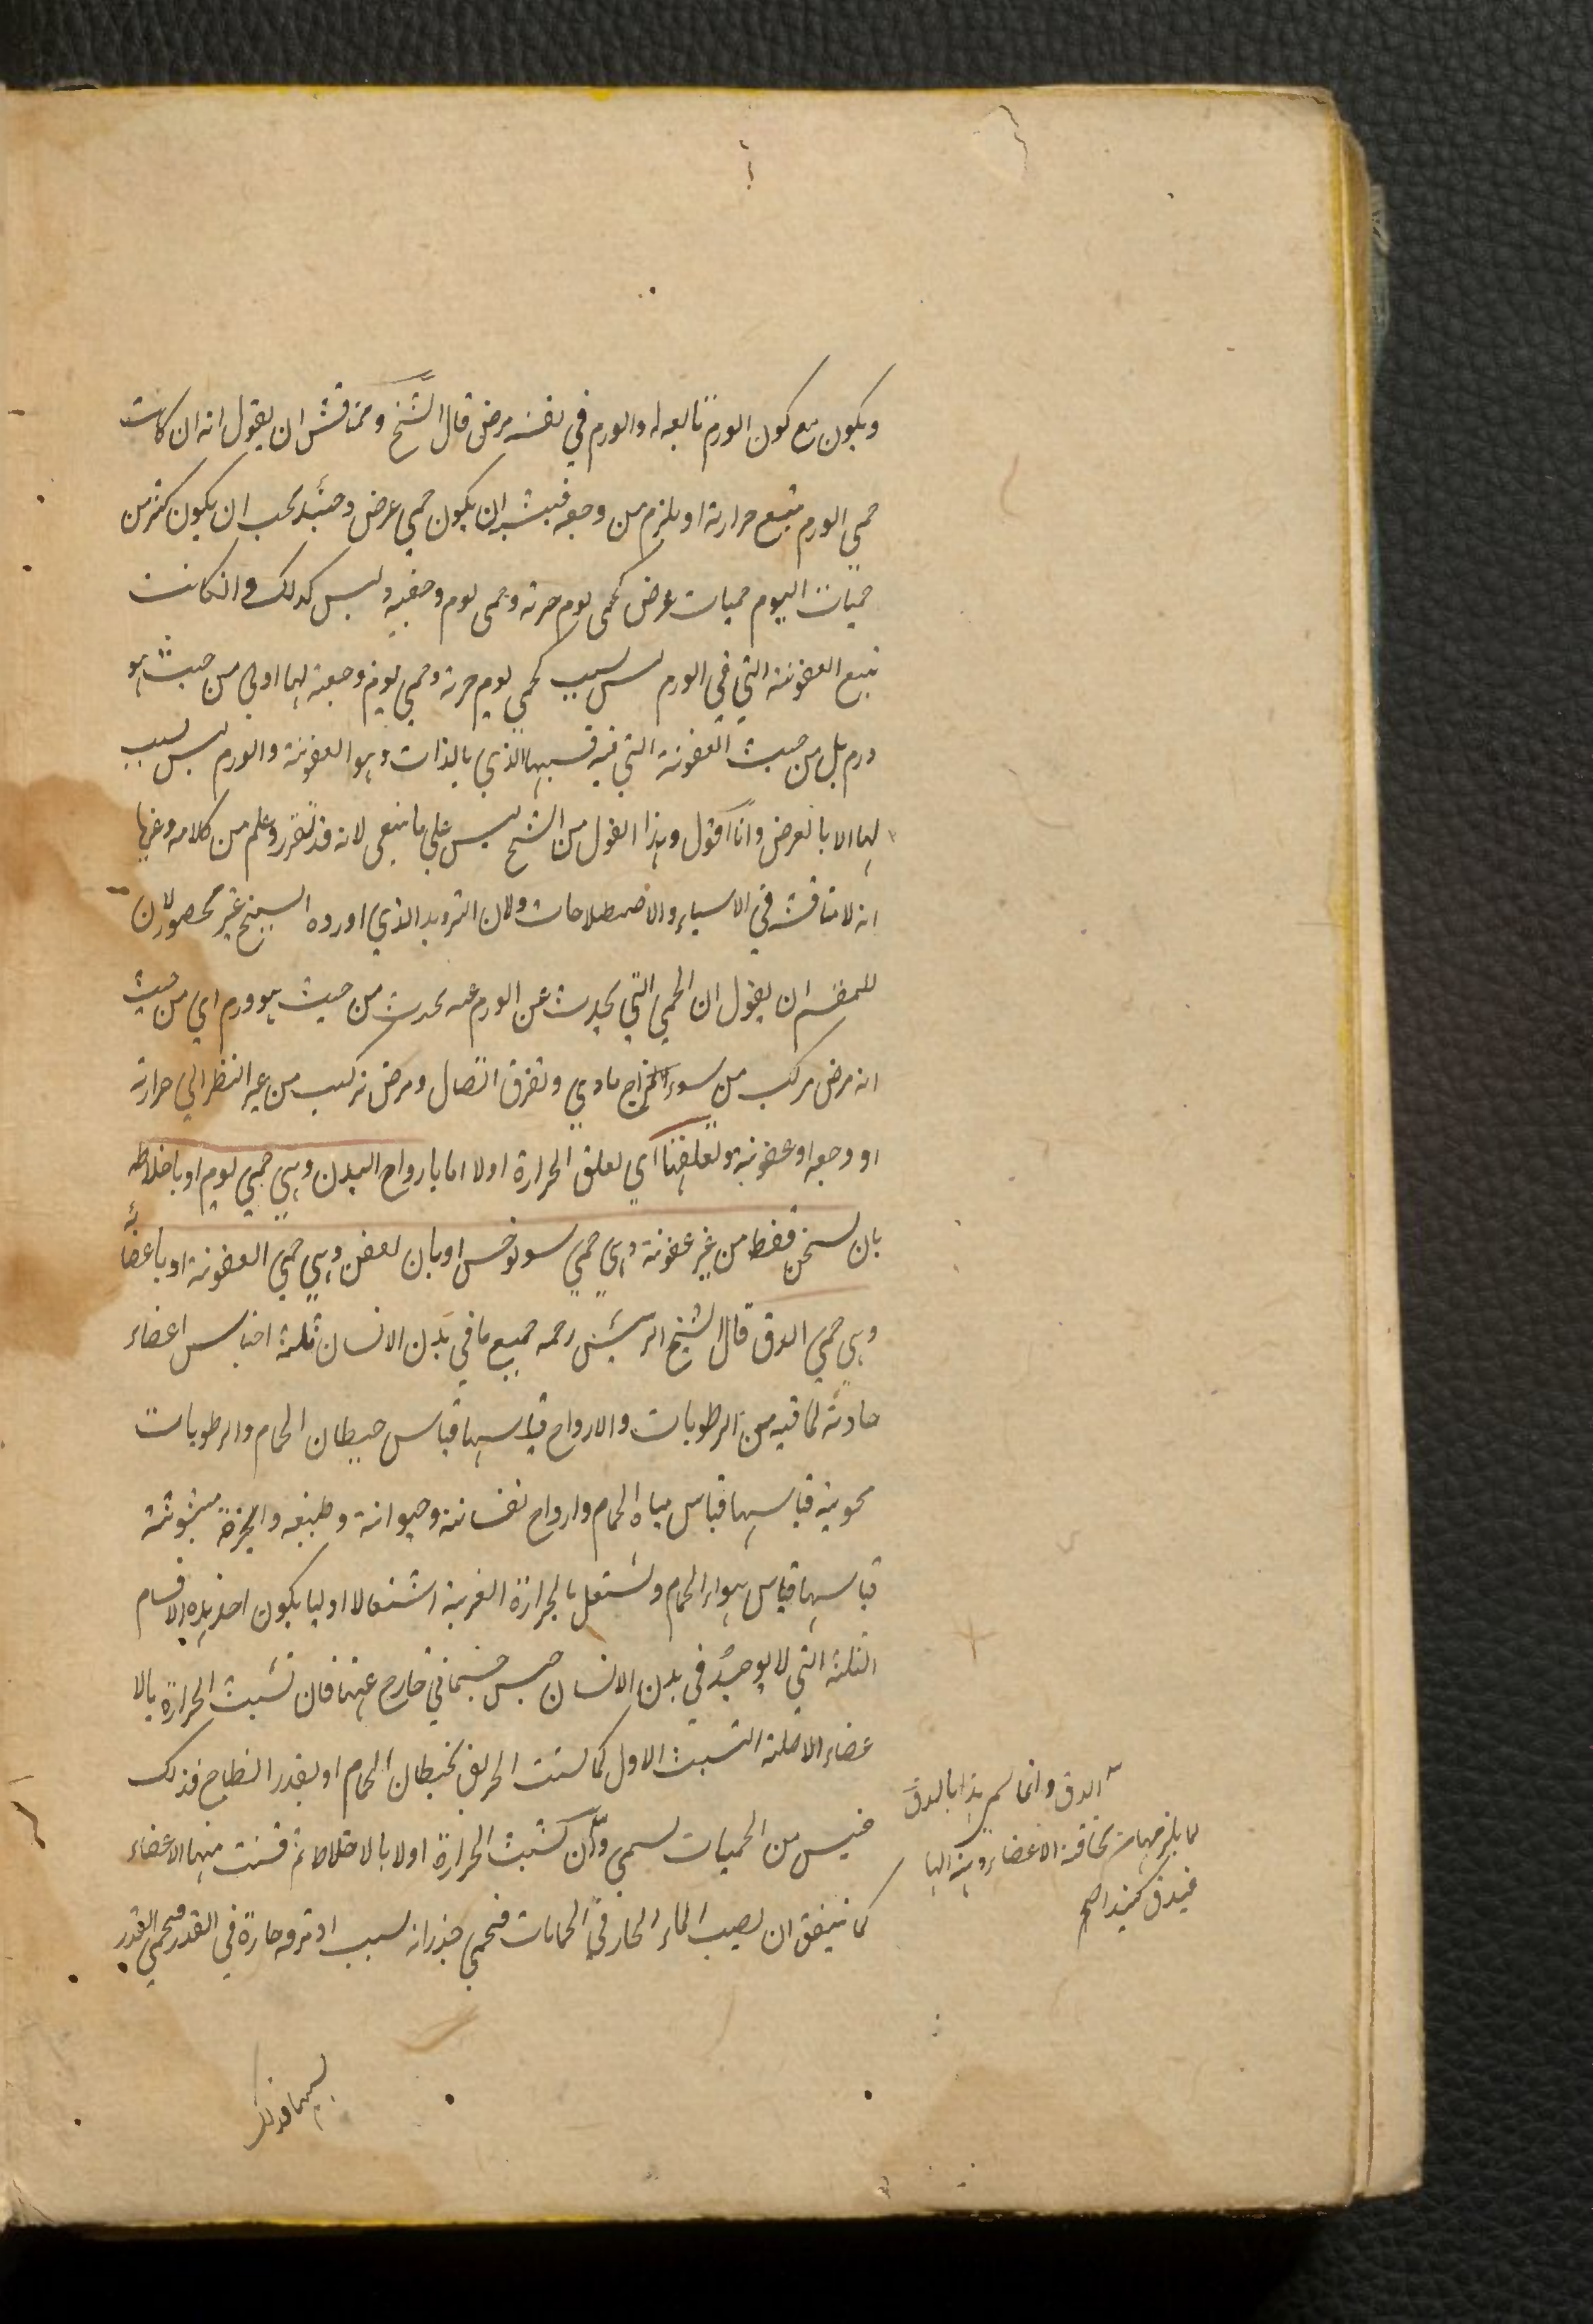 ويكون مع كون الورم تابعه له والورم في نفسه مرض قال الشيخ ومناقش ان يقول انه ان كانت
حمي الورم يتبع حرارته او يلزم من وجعه فيشبه ان يكون حمي عرض وحينئذ يجب ان يكون كثير من
حميات اليوم حميات عرض كحمى يوم حرية وحمى يوم وجعية وليس كذلك وانكانت
تتبع العفونة التي في الورم ليس بسبب كحمي يوم حرية وحمي يوم وجعية لها اولي من حيث هو
ورم بل من حيث العفونة التي فيه فسببها الذي بالذات وهو العفونة والورم ليس بسبب
لها الا بالعرض وانا اقول وهذا القول من الشيخ ليس علي ما ينبغي لانه قد تقرر وعلم من كلامه وغيرها
انه لا مناقشة في الاسماء والاصطلاحات ولان الترديد الذي اورده الشيخ غير محصور لان
للمقسم ان يقول ان الحمي التي يحدث عن الورم عنه يحدث من حيث هو ورم اي من حيث
انه مرض مركب من سوء المزاج مادي وتفرق اتصال ومرض تركيب من غير النظر الي حرارته
او وجعه او عفونية وتعلقها اي تعلق الحرارة اولا اما بارواح البدن وهي حمي يوم او باخلاطه
بان يسخن فقط من غير عفونة وهي حمي سونوخس او بان تعفن وهي حمي العفونة او باعضائه
وهي حمي الدق قال الشيخ الرئيس رحمه جميع ما في بدن الانسان ثلثة اجناس اعضاء
حاوية لما فيه من الرطوبات والارواح قياسها قياس حيطان الحمام والرطوبات
محوية قياسها قياس مياه الحمام وارواح نفسانية وحيوانية وطبيعية وابخرة مبثوثة
قياسها قياس هواء الحمام وتشتعل بالحرارة الغريبة اشتعالا اوليا يكون احد هذه الاقسام
الثلثة التي لا يوجد في بدن الانسان جنس جسماني خارج عنها فان تشبث الحرارة بالا
عضاء الاصلية التشبث الاول كما تشبث الحريق بحيطان الحمام او بقدر الطباخ فذلك
جنس من الحميات يسمي دق وان تشبث الحرارة اولا بالاخلاط ثم فشت منها الاعضاء
كما يتفق ان يصيب الماء الحار في الحمامات فتحمي جدرانه بسبب او مرقه حارة في القدر فتحمي القدر
الدق وانما سمي هذا بالدق
لما يلزمها من نحافة الاعضاء
فيدق
بسببها فذلك